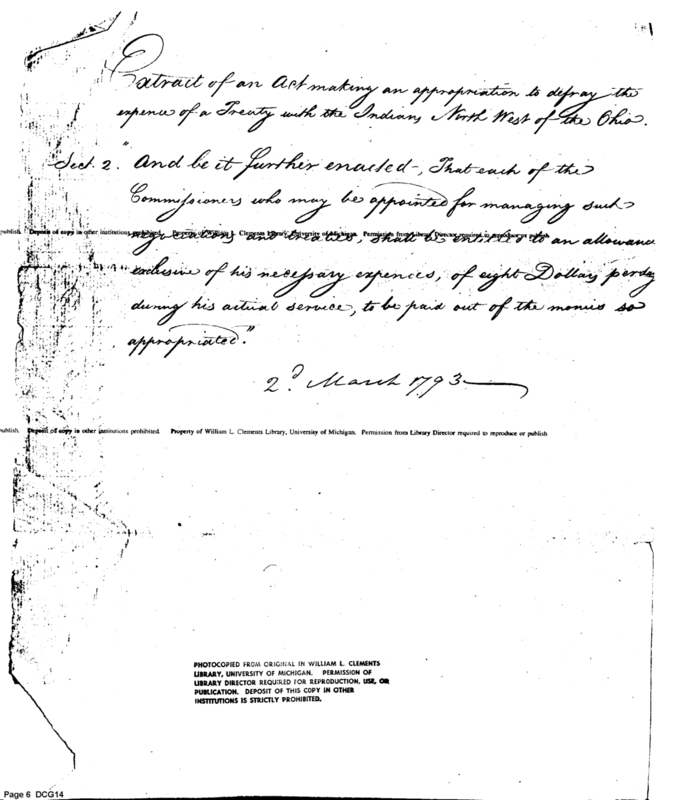 Extract of an Act making an appropriation to defray the
expence of a Treaty with the Indians North West of the Ohio.
Sect. 2. "And be it further enacted, That each of the
Commissioners who may be appointed for managing such
publish. Deposit of copy in other institutions prohibited. Property of William L. Clements Library, University of Michigan. Permission from Library Director required to reproduce or publish
negociations and treaties, shall be entitled to an allowance
"exclusive of his necessary expences, of eight Dollars per day
during his actual service, to be paid out of the monies so
appropriated."
2d March 1793
publish. Deposit of copy in other institutions prohibited. Property of William L. Clements Library, University of Michigan. Permission from Library Director required to reproduce or publish
PHOTOCOPIED FROM ORIGINAL IN WILLIAM L. CLEMENTS
LIBRARY, UNIVERSITY OF MICHIGAN. PERMISSION OF
LIBRARY DIRECTOR REQUIRED FOR REPRODUCTION, USE, OR
PUBLICATION. DEPOSIT OF THIS COPY IN OTHER
INSTITUTIONS IS STRICTLY PROHIBITED.
Page 6 DCG14